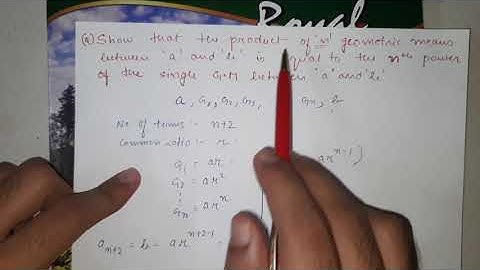 Royal
(Q) Show that the product of 'n' geometric means
between 'a' and 'b' is equal to the nth power
of the single G.M between 'a' and 'b'
a, G₁, G₂, G₃, Gn, b
No of terms :- n+2
Common ratio :- r
G₁ = ar
G₂ = ar²
⋮
Gn = arⁿ
arⁿ⁻¹)
aₙ₊₂ = b = arⁿ⁺²⁻¹ =